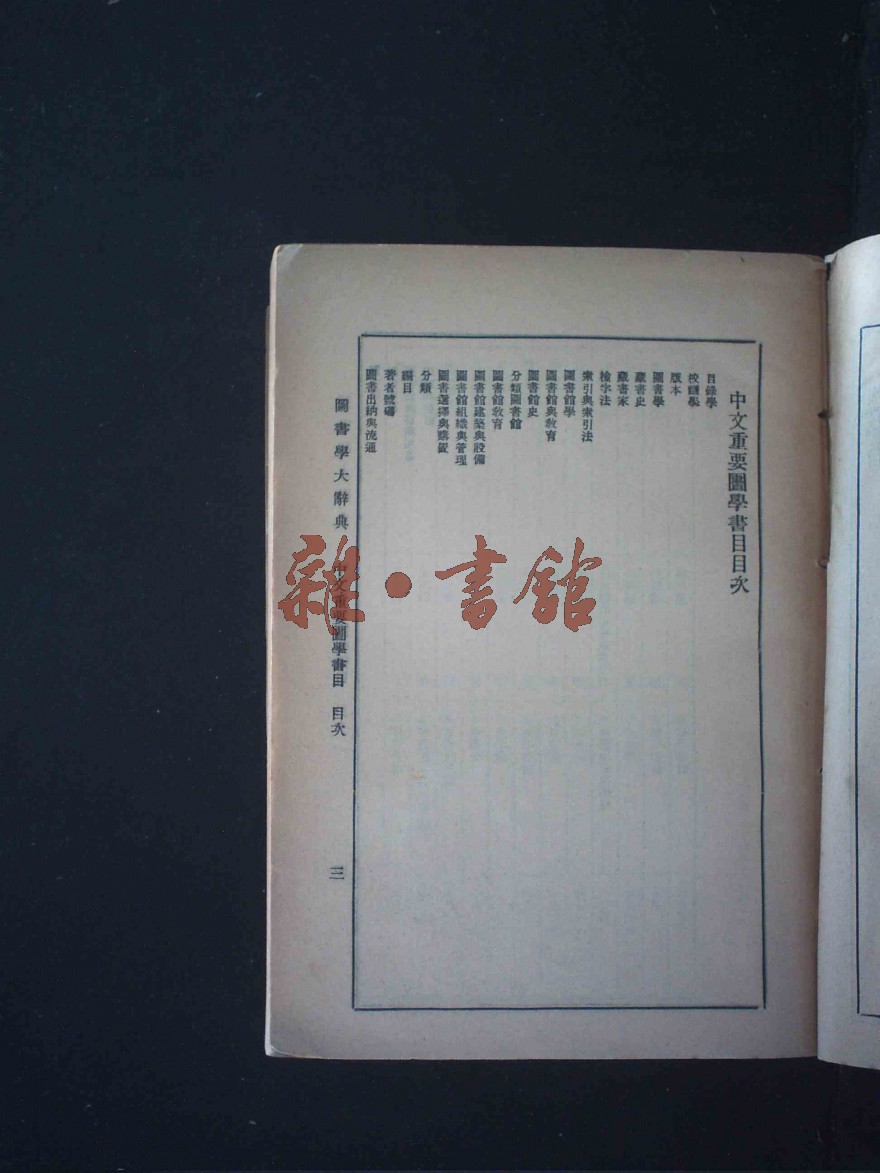 中文重要圕學書目目次
目錄學
校讎學
版本
圖書學
藏書史
藏書家
檢字法
索引與索引法
圖書館學
圖書館與教育
圖書館史
分類圖書館
圖書館教育
圖書館建築與設備
圖書館組織與管理
圖書選擇與購置
分類
編目
著者號碼
圖書出納與流通
圖書學大辭典 中文重要圕學書目 目次
三
雜·書館